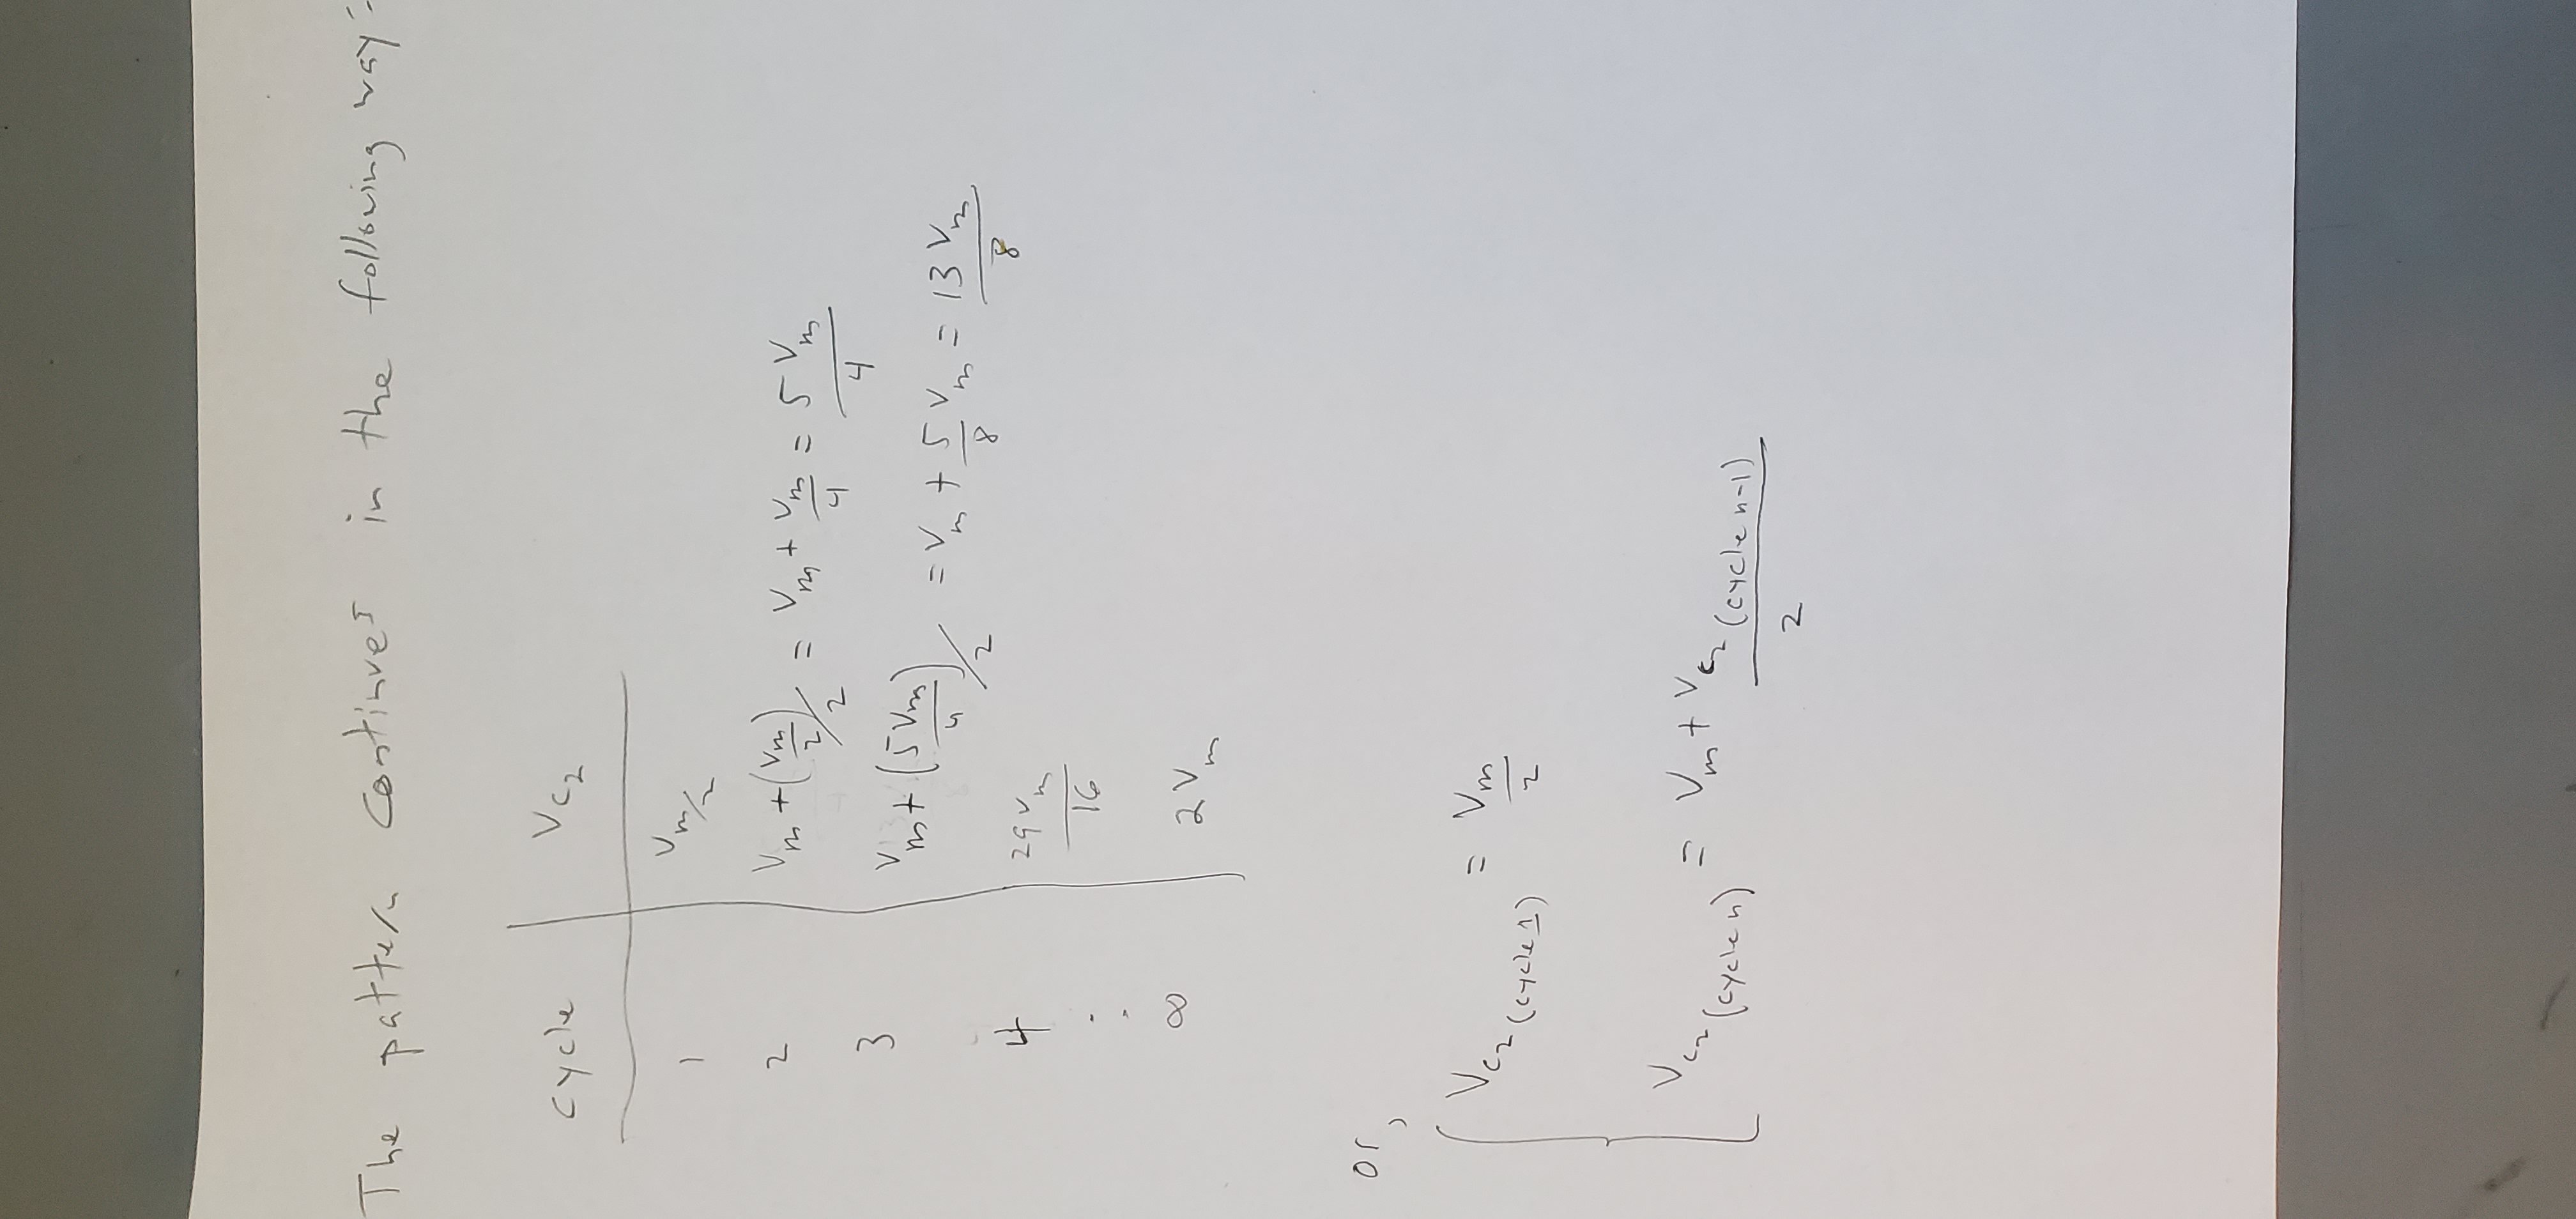 The pattern continues in the following way:
cycle | V_C2
1 | V_m/2
2 | V_m + (V_m/2)/2 = V_m + V_m/4 = 5 V_m/4
3 | V_m + (5 V_m/4)/2 = V_m + 5/8 V_m = 13 V_m/8
4 | 29 V_m/16
:
∞ | 2 V_m
or,
V_C2 (cycle 1) = V_m/2
V_C2 (cycle n) = V_m + V_C2 (cycle n-1)/2